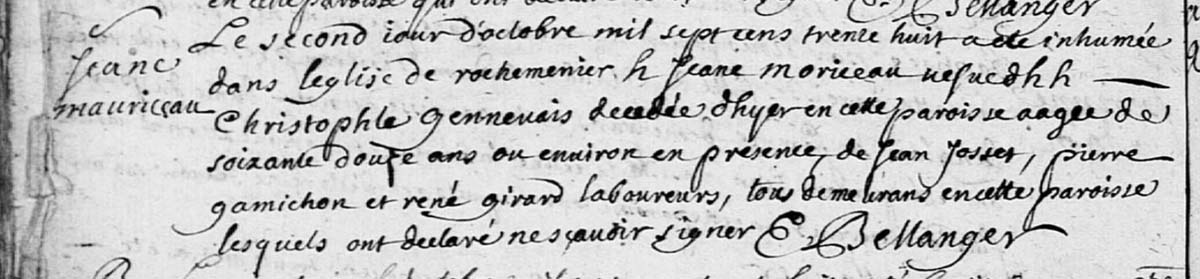 Bellanger
Le second iour d'octobre mil sept cens trente huit a eté inhumée
Jeane
dans leglise de rochemenier h Jeane moriceau vefue dhh
mauriceau
Christophle Gennevais decedée dhyer en cette paroisse aagée de
soixante douze ans ou environ en presence, de Jean Josset, pierre
gamichon et rené girard laboureurs, tous demeurans en cette paroisse
lesquels ont declaré ne sçavoir signer C. Bellanger